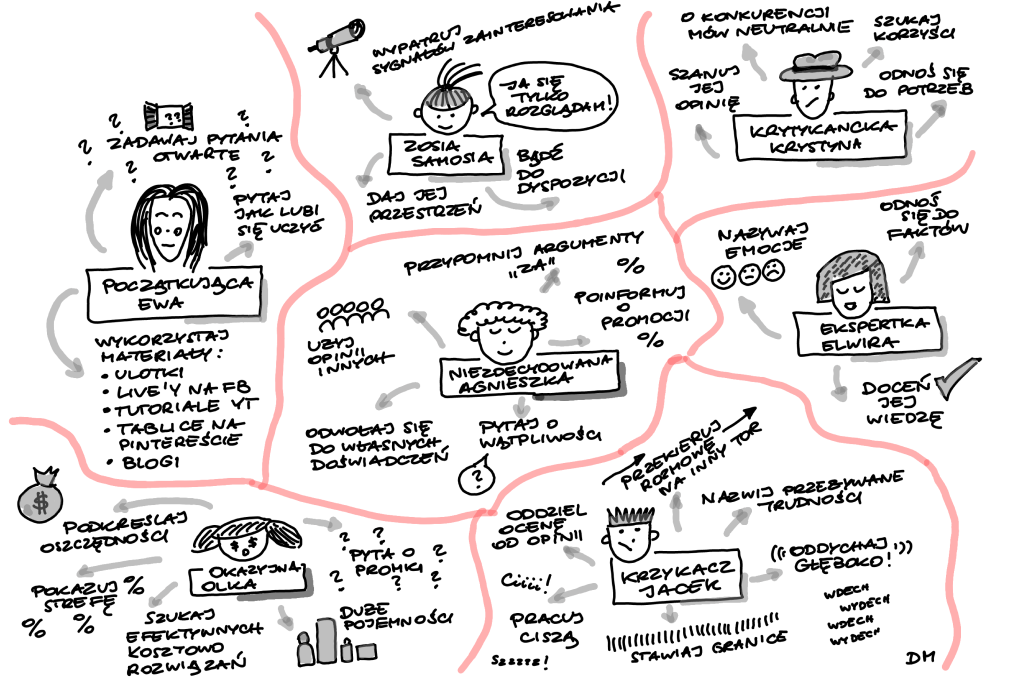 WYPATRUJ
SYGNAŁÓW ZAINTERESOWANIA
JA SIĘ
TYLKO
ROZGLĄDAM!
ZOSIA
SAMOSIA
BĄDŹ
DO
DYSPOZYCJI
DAJ JEJ
PRZESTRZEŃ
O KONKURENCJI
MÓW NEUTRALNIE
SZUKAJ
KORZYŚCI
SZANUJ
JEJ
OPINIĘ
ODNOŚ SIĘ
DO POTRZEB
KRYTYKANCKA
KRYSTYNA
? ? ? ? ? ? ?
??
ZADAWAJ PYTANIA
OTWARTE
PYTAJ
JAK LUBI
SIĘ UCZYĆ
POCZĄTKUJĄCA
EWA
WYKORZYSTAJ
MATERIAŁY:
• ULOTKI
• LIVE'Y NA FB
• TUTORIALE YT
• TABLICE NA
PINTEREŚCIE
• BLOGI
PRZYPOMNIJ ARGUMENTY
"ZA"
%
POINFORMUJ
O
PROMOCJI
%
UŻYJ
OPINII
INNYCH
NIEZDECYDOWANA
AGNIESZKA
ODWOŁAJ SIĘ
DO WŁASNYCH
DOŚWIADCZEŃ
PYTAJ O
WĄTPLIWOŚCI
?
NAZYWAJ
EMOCJE
ODNOŚ
SIĘ DO
FAKTÓW
EKSPERTKA
ELWIRA
DOCEŃ
JEJ
WIEDZĘ
$
PODKREŚLAJ
OSZCZĘDNOŚCI
$ $
OKAZYJNA
OLKA
? ? ? ? ?
PYTA O
PROMKI
POKAZUJ %
STREFĘ
% %
SZUKAJ
EFEKTYWNYCH
KOSZTOWO
ROZWIĄZAŃ
DUŻE
POJEMNOŚCI
PRZEKIERUJ
ROZMOWĘ
NA INNY TOR
ODDZIEL
OCENĘ
OD OPINII
NAZWIJ PRZEŻYWANE
TRUDNOŚCI
KRZYKACZ
JACEK
((ODDYCHAJ))
GŁĘBOKO!
WDECH
WYDECH
WDECH
WYDECH
Ciiii!
PRACUJ
CISZĄ
Szzzzz!
STAWIAJ GRANICE
DM